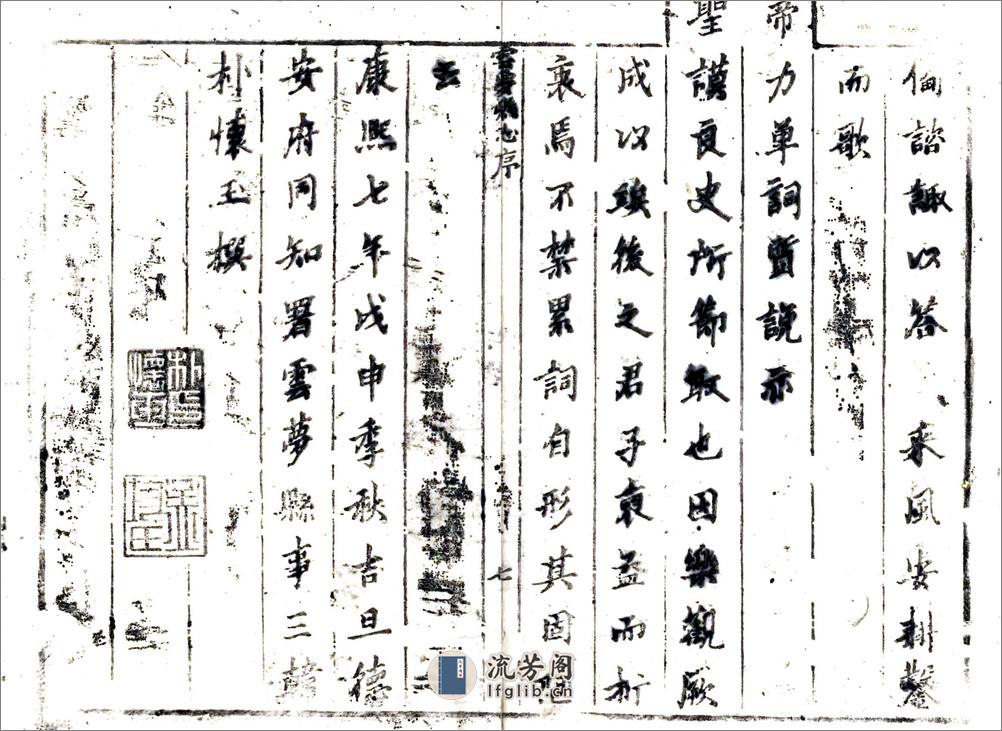 諮諏以答 采風安耕鑿
而歌
帝力單詞蹔說亦
聖謨良史所節取也因樂觀厥
成以竢後之君子裒益而折
衷焉不禁累詞自形其固陋
雲夢縣志序 七
云
康熙七年戊申季秋吉旦德
安府同知署雲夢縣事三韓
朴懷玉撰
朴印懷玉
流芳阁
lfglib.cn